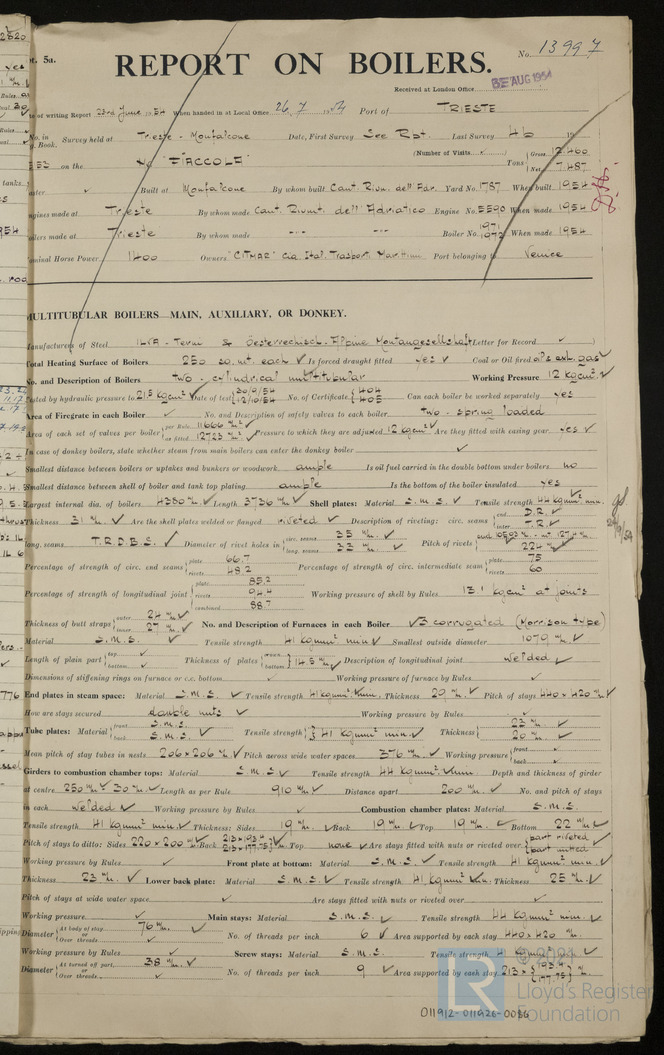 pt. 5a.
No. 13997
REPORT ON BOILERS.
Received at London Office AUG 1954
Date of writing Report 23rd June 1954 When handed in at Local Office 26.7.1954 Port of TRIESTE
No. in Reg. Book. Survey held at Trieste - Monfalcone Date, First Survey See Rpt. Last Survey 4b 19
on the "FIACCOLA" (Number of Visits ✓) Tons Gross 12.460 Net 7487
Master ✓ Built at Monfalcone By whom built Cant. Riun. dell' Adr. Yard No. 1787 When built 1954
Engines made at Trieste By whom made Cant. Riunit. dell' Adriatico Engine No. 5590 When made 1954
Boilers made at Trieste By whom made -"- -"- Boiler No. 1971 1972 When made 1954
Nominal Horse Power 1400 Owners "CITMAR" Cia Ital. Trasporti Marittimi Port belonging to Venice
MULTITUBULAR BOILERS MAIN, AUXILIARY, OR DONKEY.
Manufacturers of Steel ILVA - Terni & Oesterreichisch-Alpine Montangesellschaft Letter for Record ✓
Total Heating Surface of Boilers 250 sq. mt. each ✓ Is forced draught fitted yes ✓ Coal or Oil fired oil & exh. gas ✓
No. and Description of Boilers two - cylindrical multitubular Working Pressure 12 kg cm² ✓
Tested by hydraulic pressure to 21.5 kg cm² ✓ Date of test No. of Certificate 404 405 Can each boiler be worked separately yes
Area of Firegrate in each Boiler ✓ No. and Description of safety valves to each boiler two - spring loaded
Area of each set of valves per boiler per Rule as fitted Pressure to which they are adjusted 12 kg cm² ✓ Are they fitted with easing gear yes ✓
In case of donkey boilers, state whether steam from main boilers can enter the donkey boiler ✓
Smallest distance between boilers or uptakes and bunkers or woodwork ample Is oil fuel carried in the double bottom under boilers no
Smallest distance between shell of boiler and tank top plating ample Is the bottom of the boiler insulated yes
Largest internal dia. of boilers 4380 m/m ✓ Length 3736 m/m ✓ Shell plates: Material S.M.S. ✓ Tensile strength 44 kg mm² min.
Thickness 31 m/m ✓ Are the shell plates welded or flanged riveted ✓ Description of riveting: circ. seams end D.R. ✓ inter T.R. ✓
long. seams T.R.D.B.S. ✓ Diameter of rivet holes in circ. seams 35 m/m ✓ long. seams 33 m/m ✓ Pitch of rivets 224 m/m ✓
Percentage of strength of circ. end seams plate 66.7 rivets 48.2 Percentage of strength of circ. intermediate seam plate 75 rivets 60
Percentage of strength of longitudinal joint plate 85.2 rivets 94.4 combined 88.7 Working pressure of shell by Rules 13.1 kg cm² at joints
Thickness of butt straps outer 24 m/m ✓ inner 27 m/m ✓ No. and Description of Furnaces in each Boiler ✓ 3 corrugated (Morrison type)
Material S.M.S. ✓ Tensile strength 41 kg mm² min ✓ Smallest outside diameter 1079 m/m ✓
Length of plain part top ✓ bottom ✓ Thickness of plates crown bottom 14.5 m/m ✓ Description of longitudinal joint welded ✓
Dimensions of stiffening rings on furnace or c.c. bottom ✓ Working pressure of furnace by Rules ✓
End plates in steam space: Material S.M.S. ✓ Tensile strength 41 kg mm² min. Thickness 29 m/m ✓ Pitch of stays 440 x 420 m/m ✓
How are stays secured double nuts ✓ Working pressure by Rules ✓
Tube plates: Material front S.M.S. back S.M.S. ✓ Tensile strength 41 kg mm² min. ✓ Thickness 23 m/m ✓ 20 m/m ✓
Mean pitch of stay tubes in nests 206 x 206 m/m ✓ Pitch across wide water spaces 376 m/m ✓ Working pressure front ✓ back ✓
Girders to combustion chamber tops: Material S.M.S ✓ Tensile strength 44 kg mm² ✓ min Depth and thickness of girder
at centre 250 m/m x 30 m/m ✓ Length as per Rule 910 m/m ✓ Distance apart 200 m/m ✓ No. and pitch of stays
in each welded ✓ Working pressure by Rules ✓ Combustion chamber plates: Material S.M.S.
Tensile strength 41 kg mm² min. ✓ Thickness: Sides 19 m/m ✓ Back 19 m/m ✓ Top 19 m/m ✓ Bottom 22 m/m ✓
Pitch of stays to ditto: Sides 220 x 200 m/m ✓ Back 213 x 193.4 213 x 177.75 ✓ Top none ✓ Are stays fitted with nuts or riveted over part riveted part nutted ✓
Working pressure by Rules ✓ Front plate at bottom: Material S.M.S. ✓ Tensile strength 41 kg mm² min.
Thickness 23 m/m ✓ Lower back plate: Material S.M.S. ✓ Tensile strength 41 kg mm² min. Thickness 25 m/m ✓
Pitch of stays at wide water space ✓ Are stays fitted with nuts or riveted over ✓
Working pressure ✓ Main stays: Material S.M.S. ✓ Tensile strength 44 kg mm² min. ✓
Diameter At body of stay 76 m/m ✓ or Over threads ✓ No. of threads per inch 6 ✓ Area supported by each stay 440 x 420 m/m
Working pressure by Rules ✓ Screw stays: Material S.M.S. Tensile strength 41 kg mm² min. ✓
Diameter At turned off part 38 m/m ✓ or Over threads ✓ No. of threads per inch 9 ✓ Area supported by each stay 213 x 193.4 177.75 m/m
© 2021
LR
Lloyd's Register
Foundation
011912-011926-0086